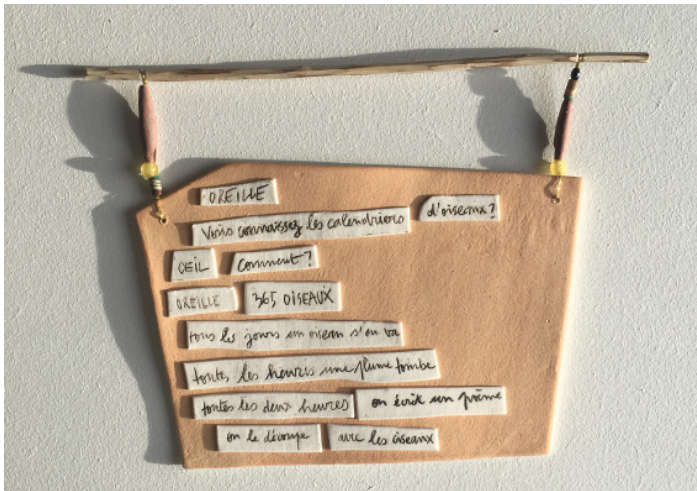 OREILLE
Vous connaissez les calendriers d'oiseaux ?
OEIL comment ?
OREILLE 365 OISEAUX
tous les jours un oiseau s'en va
toutes les heures une plume tombe
toutes les deux heures on écrit un poème
on le découpe avec les ciseaux